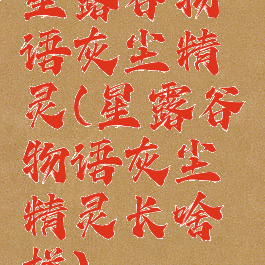 星露谷物
语灰尘精
灵(星露谷
物语灰尘
精灵长啥
样)